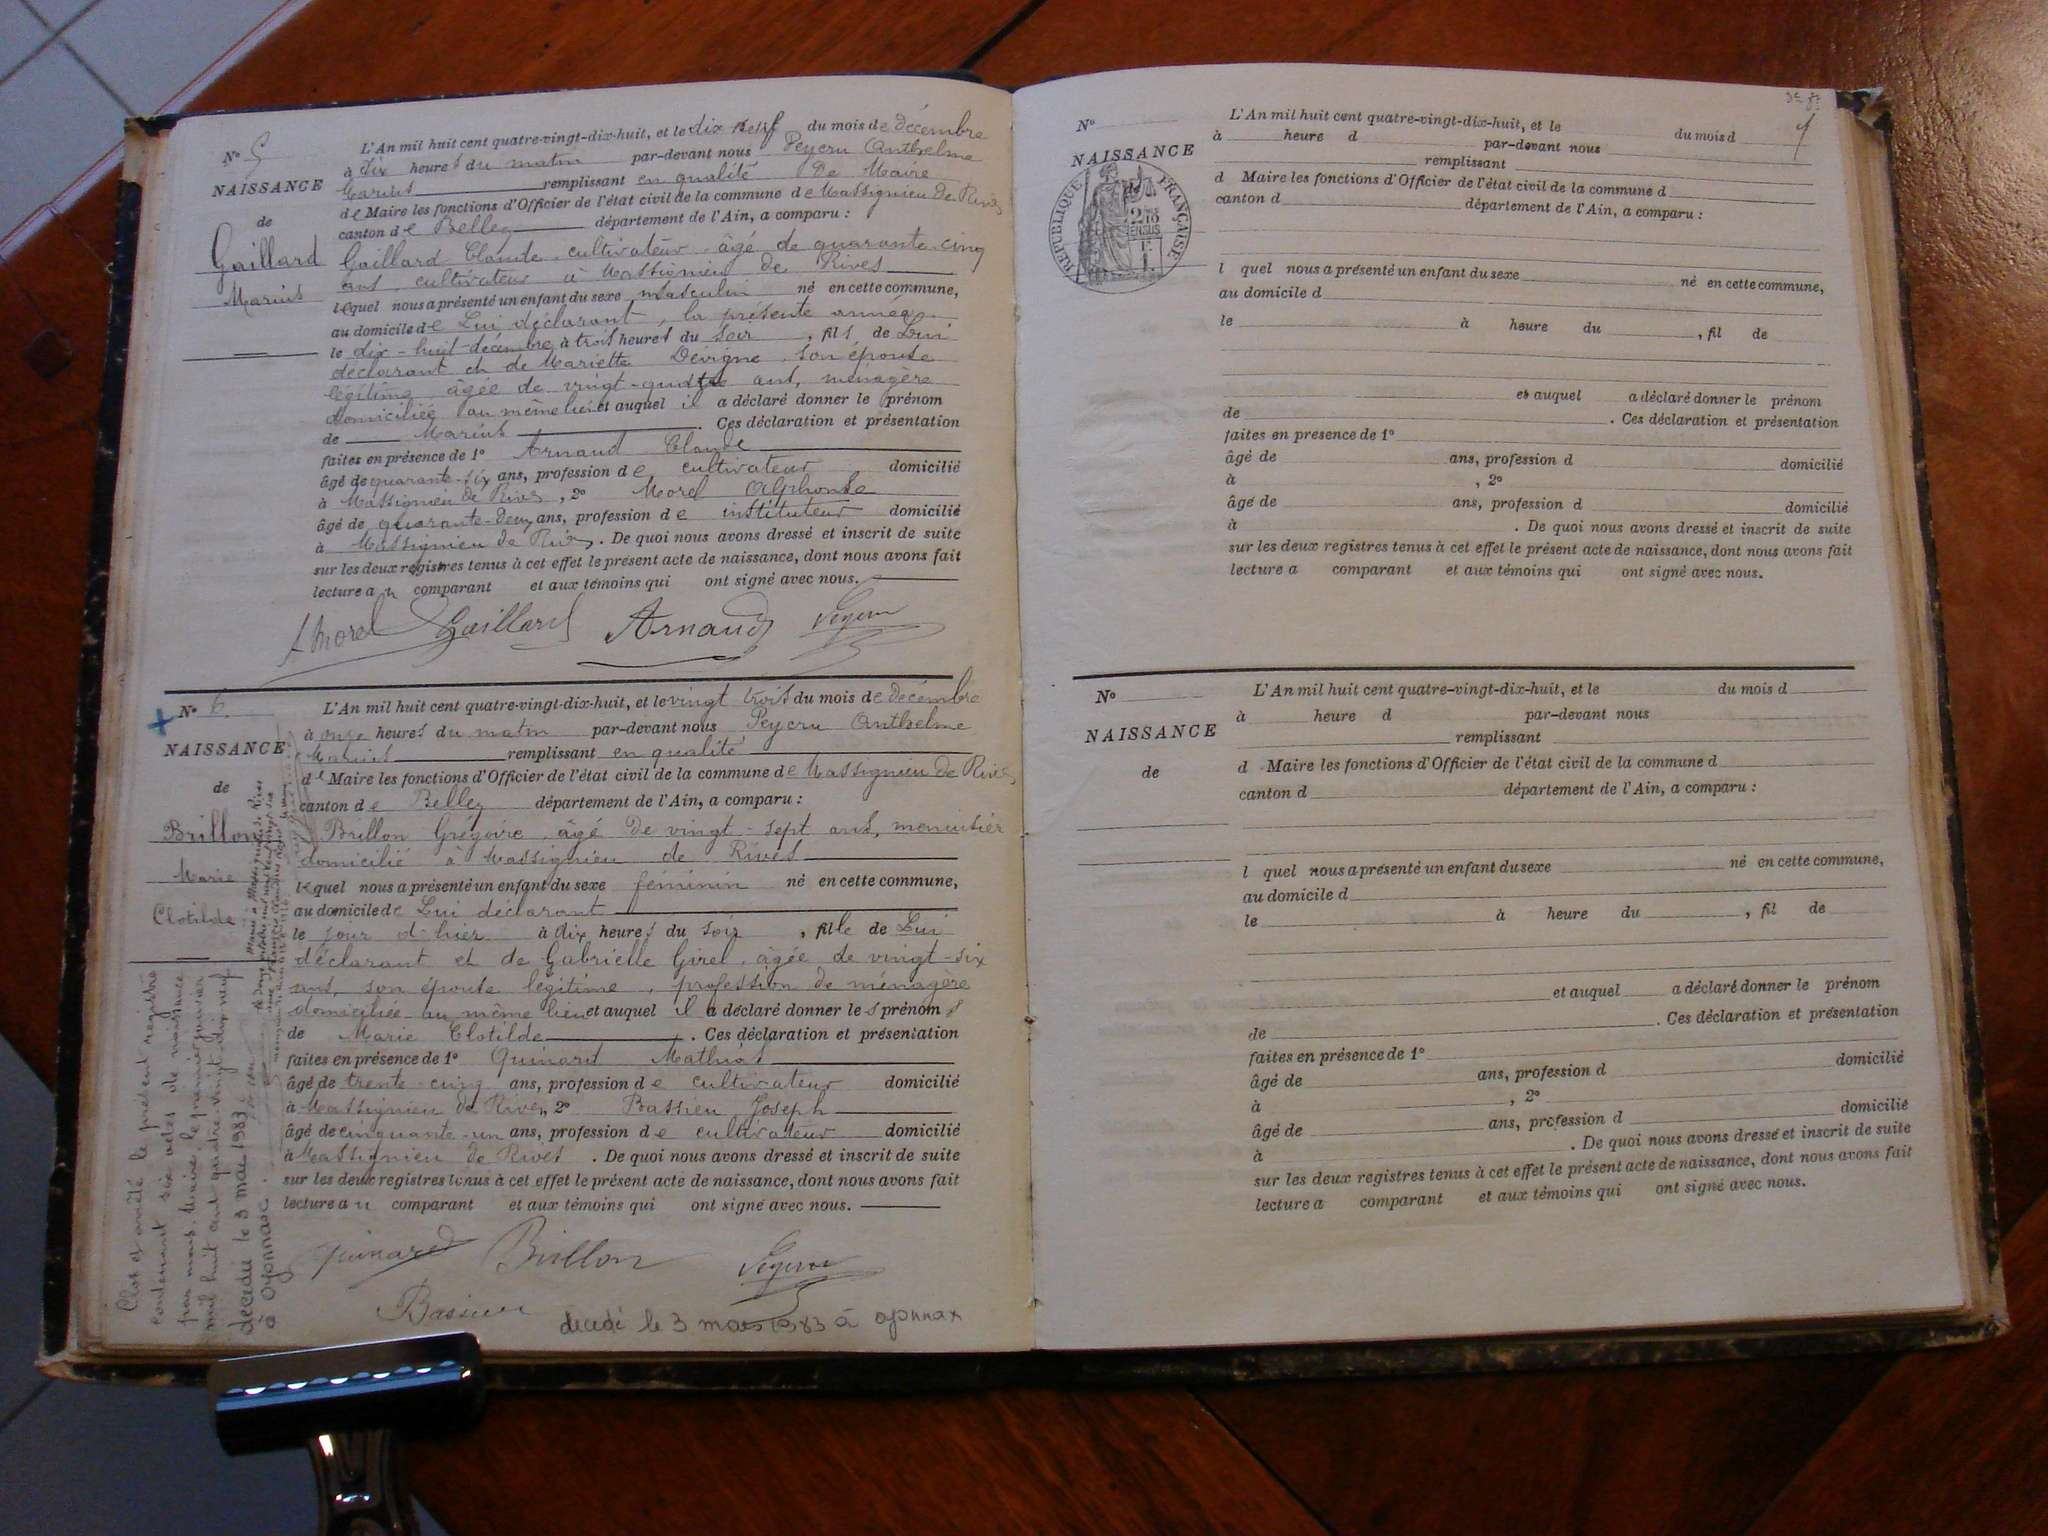 Nº 5
NAISSANCE
de
Gaillard
Marius
L'An mil huit cent quatre-vingt-dix-huit, et le dix neuf du mois de décembre
à dix heures du matin par-devant nous Peycru Anthelme
Marius remplissant en qualité De Maire
de Maire les fonctions d'Officier de l'état civil de la commune de Massignieu De Rives
canton de Belley département de l'Ain, a comparu :
Gaillard Claude cultivateur âgé de quarante-cinq
ans, cultivateur à Massignieu de Rives
lequel nous a présenté un enfant du sexe masculin né en cette commune,
au domicile de Lui déclarant, la présente année
le dix-huit décembre à trois heures du soir, fils de Lui
déclarant et de Mariette Dévigne, son épouse
légitime âgée de vingt-quatre ans, ménagère
domiciliée au même lieu et auquel il a déclaré donner le prénom
de Marius. Ces déclaration et présentation
faites en présence de 1º Arnaud Claude
âgé de quarante-six ans, profession de cultivateur domicilié
à Massignieu de Rives, 2º Morel Alphonse
âgé de quarante-deux ans, profession de instituteur domicilié
à Massignieu de Rives. De quoi nous avons dressé et inscrit de suite
sur les deux registres tenus à cet effet le présent acte de naissance, dont nous avons fait
lecture au comparant et aux témoins qui ont signé avec nous.
AMorel Gaillard Arnaud
Nº 6
NAISSANCE
de
Brillon
Marie
Clotilde
L'An mil huit cent quatre-vingt-dix-huit, et le vingt trois du mois de décembre
à onze heures du matin par-devant nous Peycru Anthelme
Marius remplissant en qualité
de Maire les fonctions d'Officier de l'état civil de la commune de Massignieu de Rives
canton de Belley département de l'Ain, a comparu :
Brillon Grégoire, âgé de vingt-sept ans, menuisier
domicilié à Massignieu de Rives
lequel nous a présenté un enfant du sexe féminin né en cette commune,
au domicile de Lui déclarant
le jour d'hier à dix heures du soir, fille de Lui
déclarant et de Gabrielle Girel, âgée de vingt-six
ans, son épouse légitime, profession de ménagère
domiciliée au même lieu et auquel il a déclaré donner les prénoms
de Marie Clotilde. Ces déclaration et présentation
faites en présence de 1º Quinard Mathias
âgé de trente-cinq ans, profession de cultivateur domicilié
à Massignieu de Rives, 2º Bassieu Joseph
âgé de cinquante-un ans, profession de cultivateur domicilié
à Massignieu de Rives. De quoi nous avons dressé et inscrit de suite
sur les deux registres tenus à cet effet le présent acte de naissance, dont nous avons fait
lecture au comparant et aux témoins qui ont signé avec nous.
Quinard Brillon
Bassieu
decedé le 3 mars 1983 à oyonnax
Clos et arrêté le présent registre
contenant six actes de naissance
par nous, Maire, le premier janvier
mil huit cent quatre-vingt-dix-neuf
décédée le 3 mars 1983
à Oyonnax
Nº
NAISSANCE
de
RÉPUBLIQUE FRANÇAISE
L'An mil huit cent quatre-vingt-dix-huit, et le du mois d
à heure d par-devant nous
remplissant
d Maire les fonctions d'Officier de l'état civil de la commune d
canton d département de l'Ain, a comparu :
l quel nous a présenté un enfant du sexe né en cette commune,
au domicile d
le à heure du , fil de
et auquel a déclaré donner le prénom
de . Ces déclaration et présentation
faites en présence de 1º
âgé de ans, profession d domicilié
à , 2º
âgé de ans, profession d domicilié
à . De quoi nous avons dressé et inscrit de suite
sur les deux registres tenus à cet effet le présent acte de naissance, dont nous avons fait
lecture a comparant et aux témoins qui ont signé avec nous.
Nº
NAISSANCE
de
L'An mil huit cent quatre-vingt-dix-huit, et le du mois d
à heure d par-devant nous
remplissant
d Maire les fonctions d'Officier de l'état civil de la commune d
canton d département de l'Ain, a comparu :
l quel nous a présenté un enfant du sexe né en cette commune,
au domicile d
le à heure du , fil de
et auquel a déclaré donner le prénom
de . Ces déclaration et présentation
faites en présence de 1º
âgé de ans, profession d domicilié
à , 2º
âgé de ans, profession d domicilié
à . De quoi nous avons dressé et inscrit de suite
sur les deux registres tenus à cet effet le présent acte de naissance, dont nous avons fait
lecture a comparant et aux témoins qui ont signé avec nous.